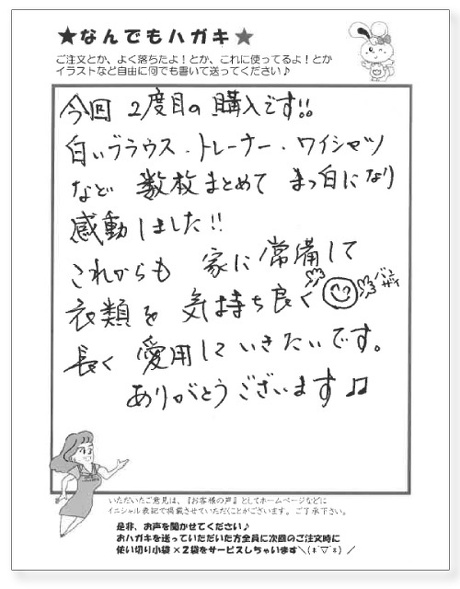 ★なんでもハガキ★
ご注文とか、よく落ちたよ！とか、これに使ってるよ！とか
イラストなど自由に何でも書いて送ってください♪
今回 2度目の購入です!!
白いブラウス・トレーナー・ワイシャツ
など 数枚まとめて まっ白になり
感動しました!!
これからも 家に常備して
衣類を 気持ち良く
バンザイ
長く 愛用していきたいです。
ありがとうございます♫
いただいたご意見は、『お客様の声』としてホームページなどに
イニシャル表記で掲載させていただくことがございます。ご了承下さい。
是非、お声を聞かせてください♪
おハガキを送っていただいた方全員に次回のご注文時に
使い切り小袋×2袋をサービスしちゃいます＼(*´▽`*)／